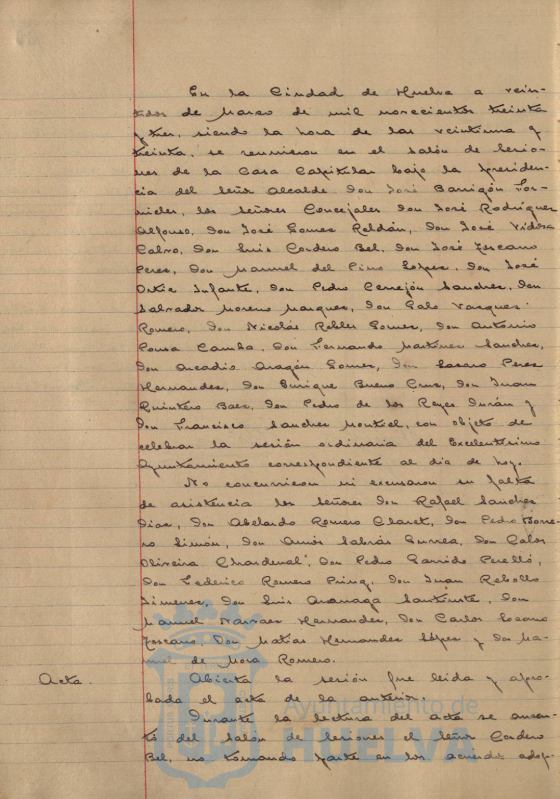 En la Ciudad de Huelva a vein-
tidos de Marzo de mil novecientos treinta
y tres, siendo la hora de las veintiuna y
treinta, se reunieron en el salón de Sesio-
nes de la Casa Capitular bajo la presiden-
cia del Señor Alcalde Don José Barrigón For-
nieles, los señores Concejales Don José Rodriguez
Alfonso, Don José Gomez Roldán, Don José Vidosa
Calvo, Don Luis Cordero Bel, Don José Toscano
Perez, Don Manuel del Pino López, Don José
Ortiz Infante, Don Pedro Cerrejón Sanchez, Don
Salvador Moreno Marquez, Don Galo Vazquez
Romero, Don Nicolás Robles Gomez, Don Antonio
Ponsa Camba, Don Fernando Martinez Sanchez,
Don Arcadio Aragón Gomez, Don Lazaro Perez
Hernandez, Don Enrique Bueno Cruz, Don Juan
Quintero Baez, Don Pedro de los Reyes Durán y
Don Francisco Sanchez Montiel, con objeto de
celebrar la sesión ordinaria del Excelentísimo
Ayuntamiento correspondiente al dia de hoy.
No concurrieron ni excusaron su falta
de asistencia los señores Don Rafael Sanchez
Diaz, Don Abelardo Romero Claret, Don Pedro Borre-
ro Limón, Don Amós Sabrás Gurrea, Don
Oliveira Chardenal, Don Pedro Garrido Perelló,
Don Federico Romero Don Juan Rebollo
Jimenez, Don Luis Don
Manuel Narvaez Hernandez, Don Carlos
Toscano, Don Matias Hernandez López y Don Ma-
nuel de Mora Romero.
Acta. Abierta la sesión fue leida y apro-
bada el acta de la anterior.
Durante la lectura del acta se ausen-
tó del salón de sesiones el Señor Cordero
Bel, no tomando parte en los acuerdos adop-
Ayuntamiento de
HUELVA